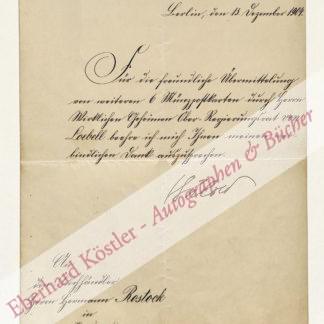 Berlin, den 13. Dezember 1904.
Für die freundliche Übermittelung
von weiteren 6 Münzpostkarten durch Herrn
Wirklichen Geheimen Ober Regierungsrat von
Loebell beehre ich mich Ihnen meinen ver-
bindlichen Dank auszusprechen.
An
Herrn Hermann Rostock
in
Eberhard Köstler - Autographen & Bücher